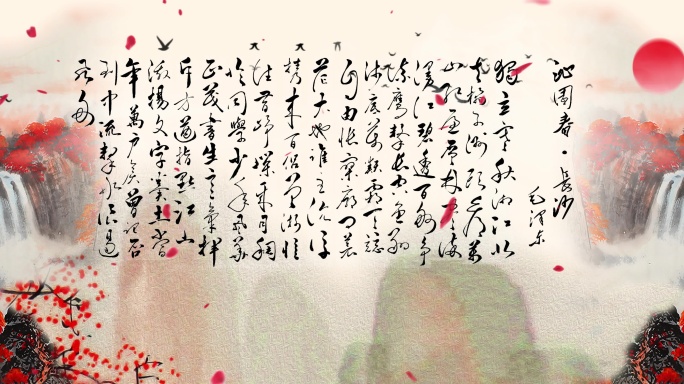 沁園春·長沙
毛澤东
獨立寒秋湘江北
去橘子洲頭看萬
山紅遍層林尽染
漫江碧透百舸争
流鹰擊長空魚翔
浅底萬類霜天競
自由悵寥廓问蒼
茫大地谁主沉浮
携来百侣曾游憶
往昔崢嵘歲月稠
恰同學少年風華
正茂書生意氣揮
斥方遒指點江山
激揚文字糞土當
年萬户侯曾记否
到中流擊水浪遏
飞舟